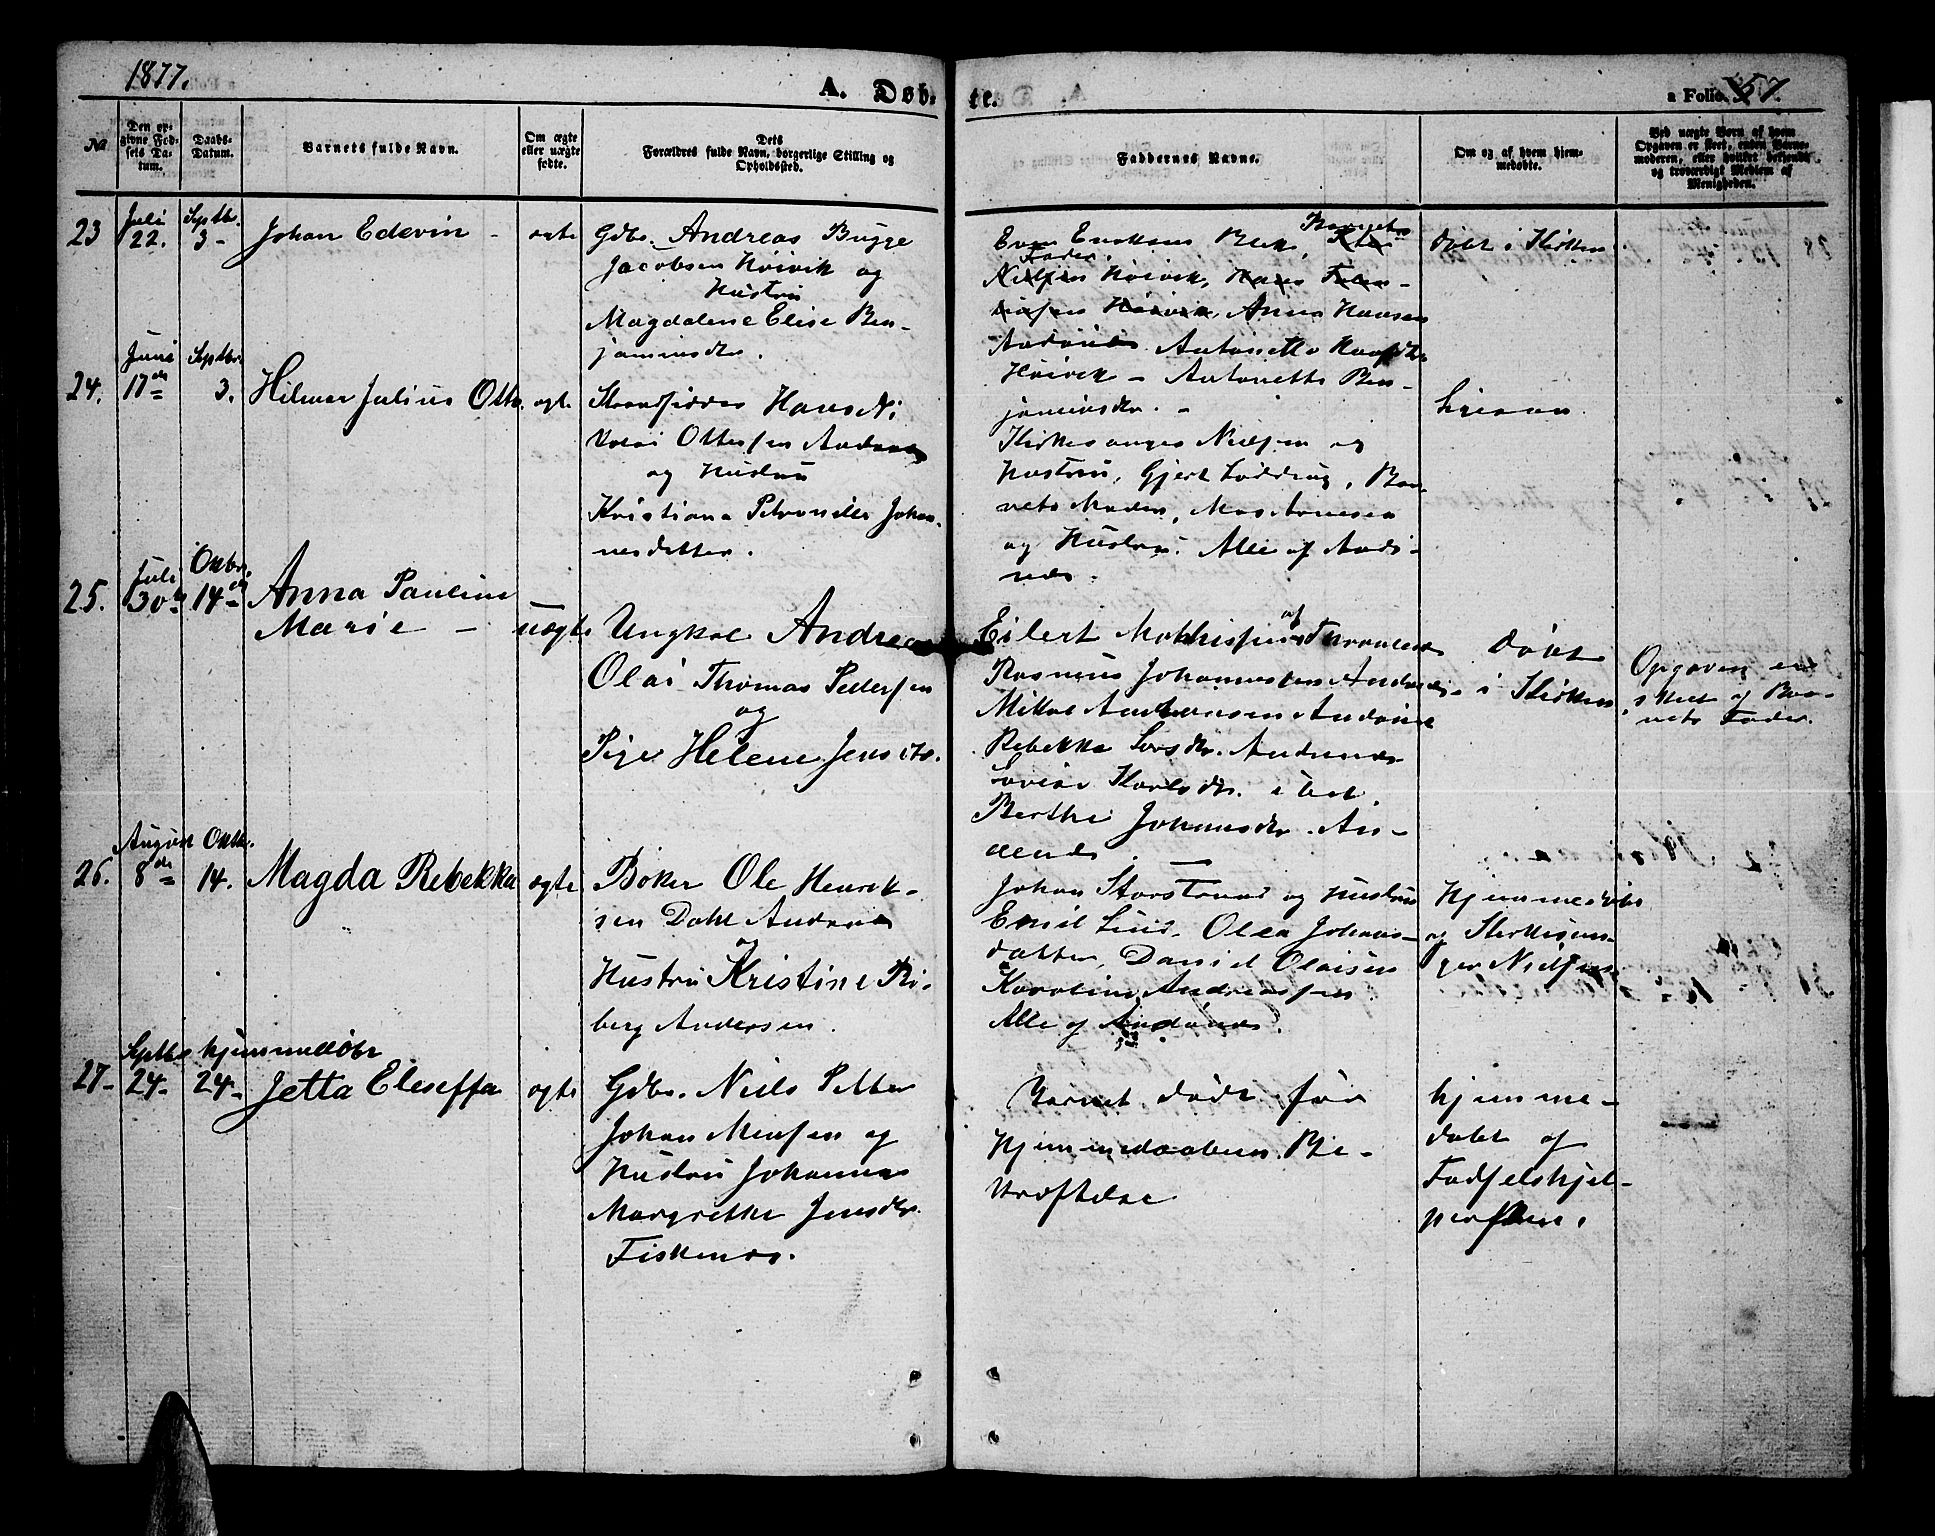 1877.
A. Døb-
te.
a Folio. 57
No
Den opgivne Fødsels Datum.
Daabs-Datum.
Barnets fulde Navn.
Om ægte eller uægte fødte.
Dets Forældres fulde Navn, borgerlige Stilling og Opholdssted.
Faddernes Navne.
Om og af hvem hjemmedøbte.
Ved uægte Børn af hvem Opgaven er skeet, enten Barnemoderen, eller hvilket bekjendt og troværdigt Medlem af Menigheden.
23
Juli
22.
Septbr.
3-
Johan Edevin -
ægte
Gdbr. Andreas Bugge
Jacobsen Høivik og
Hustru
Magdalene Elise Ben-
jaminsdtr.
Barnets
Fader.
Nielsen Høivik, Hans
Høivik, Anna Hansen
Andønes Antonette
Høivik - Antonette Ben-
jaminsdtr. -
døbt i Kirken
24.
Juni
17de
Septbr.
3.
Hilmar Julius Otto.
ægte
Strandsidder Hans Ni
Ottersen Andenes
og Hustru
Kristiana Petronille Johan-
nesdatter.
Kirkesanger Nielsen og
Hustru, Gjert Loddring, Bar-
nets Moder,
og Hustru. Alle af Andø-
nes.
ligesaa
25.
Juli
30te
Oktbr.
14de
Anna Pauline
Marie -
uægte
Ungkal Andreas
Olai Thomas Pedersen
og
Pige Helene Jensdtr.
Eilert Mathissen af
Rasmus Johannessen Andenes
Mikal Andønes
Rebekka Larsdtr. Andenes
Lovise Karlsdtr. ibid.
Berthe Johansdtr. An-
denes.
døbt
i Kirken
Opgaven er
skeet af Bar-
nets Fader.
26.
August
8de
Oktbr.
14.
Magda Rebekka
ægte
Bøker Ole Henrik-
sen Dahl Andenes
og
Hustru Kristine Ri-
berg Andersen.
Johan Storstrand og Hustru
Emil Lind, Olea Johans-
datter, Daniel Olaisen
Karoline Andreassen
Alle af Andønes.
Hjemmedøbt
og Kirkesan-
ger Nielsen
27-
Septbr
24-
hjemmedøbt
24-
Jetta Eleseffa
ægte
Gdbr. Niels Petter
Johan og
Hustru Johanna
Margrethe Jensdtr.
Fiskenes.
Barnet døde før
Hjemmedaabens Be-
kræftelse
hjemme-
døbt af
Fødselshjel-
persken.